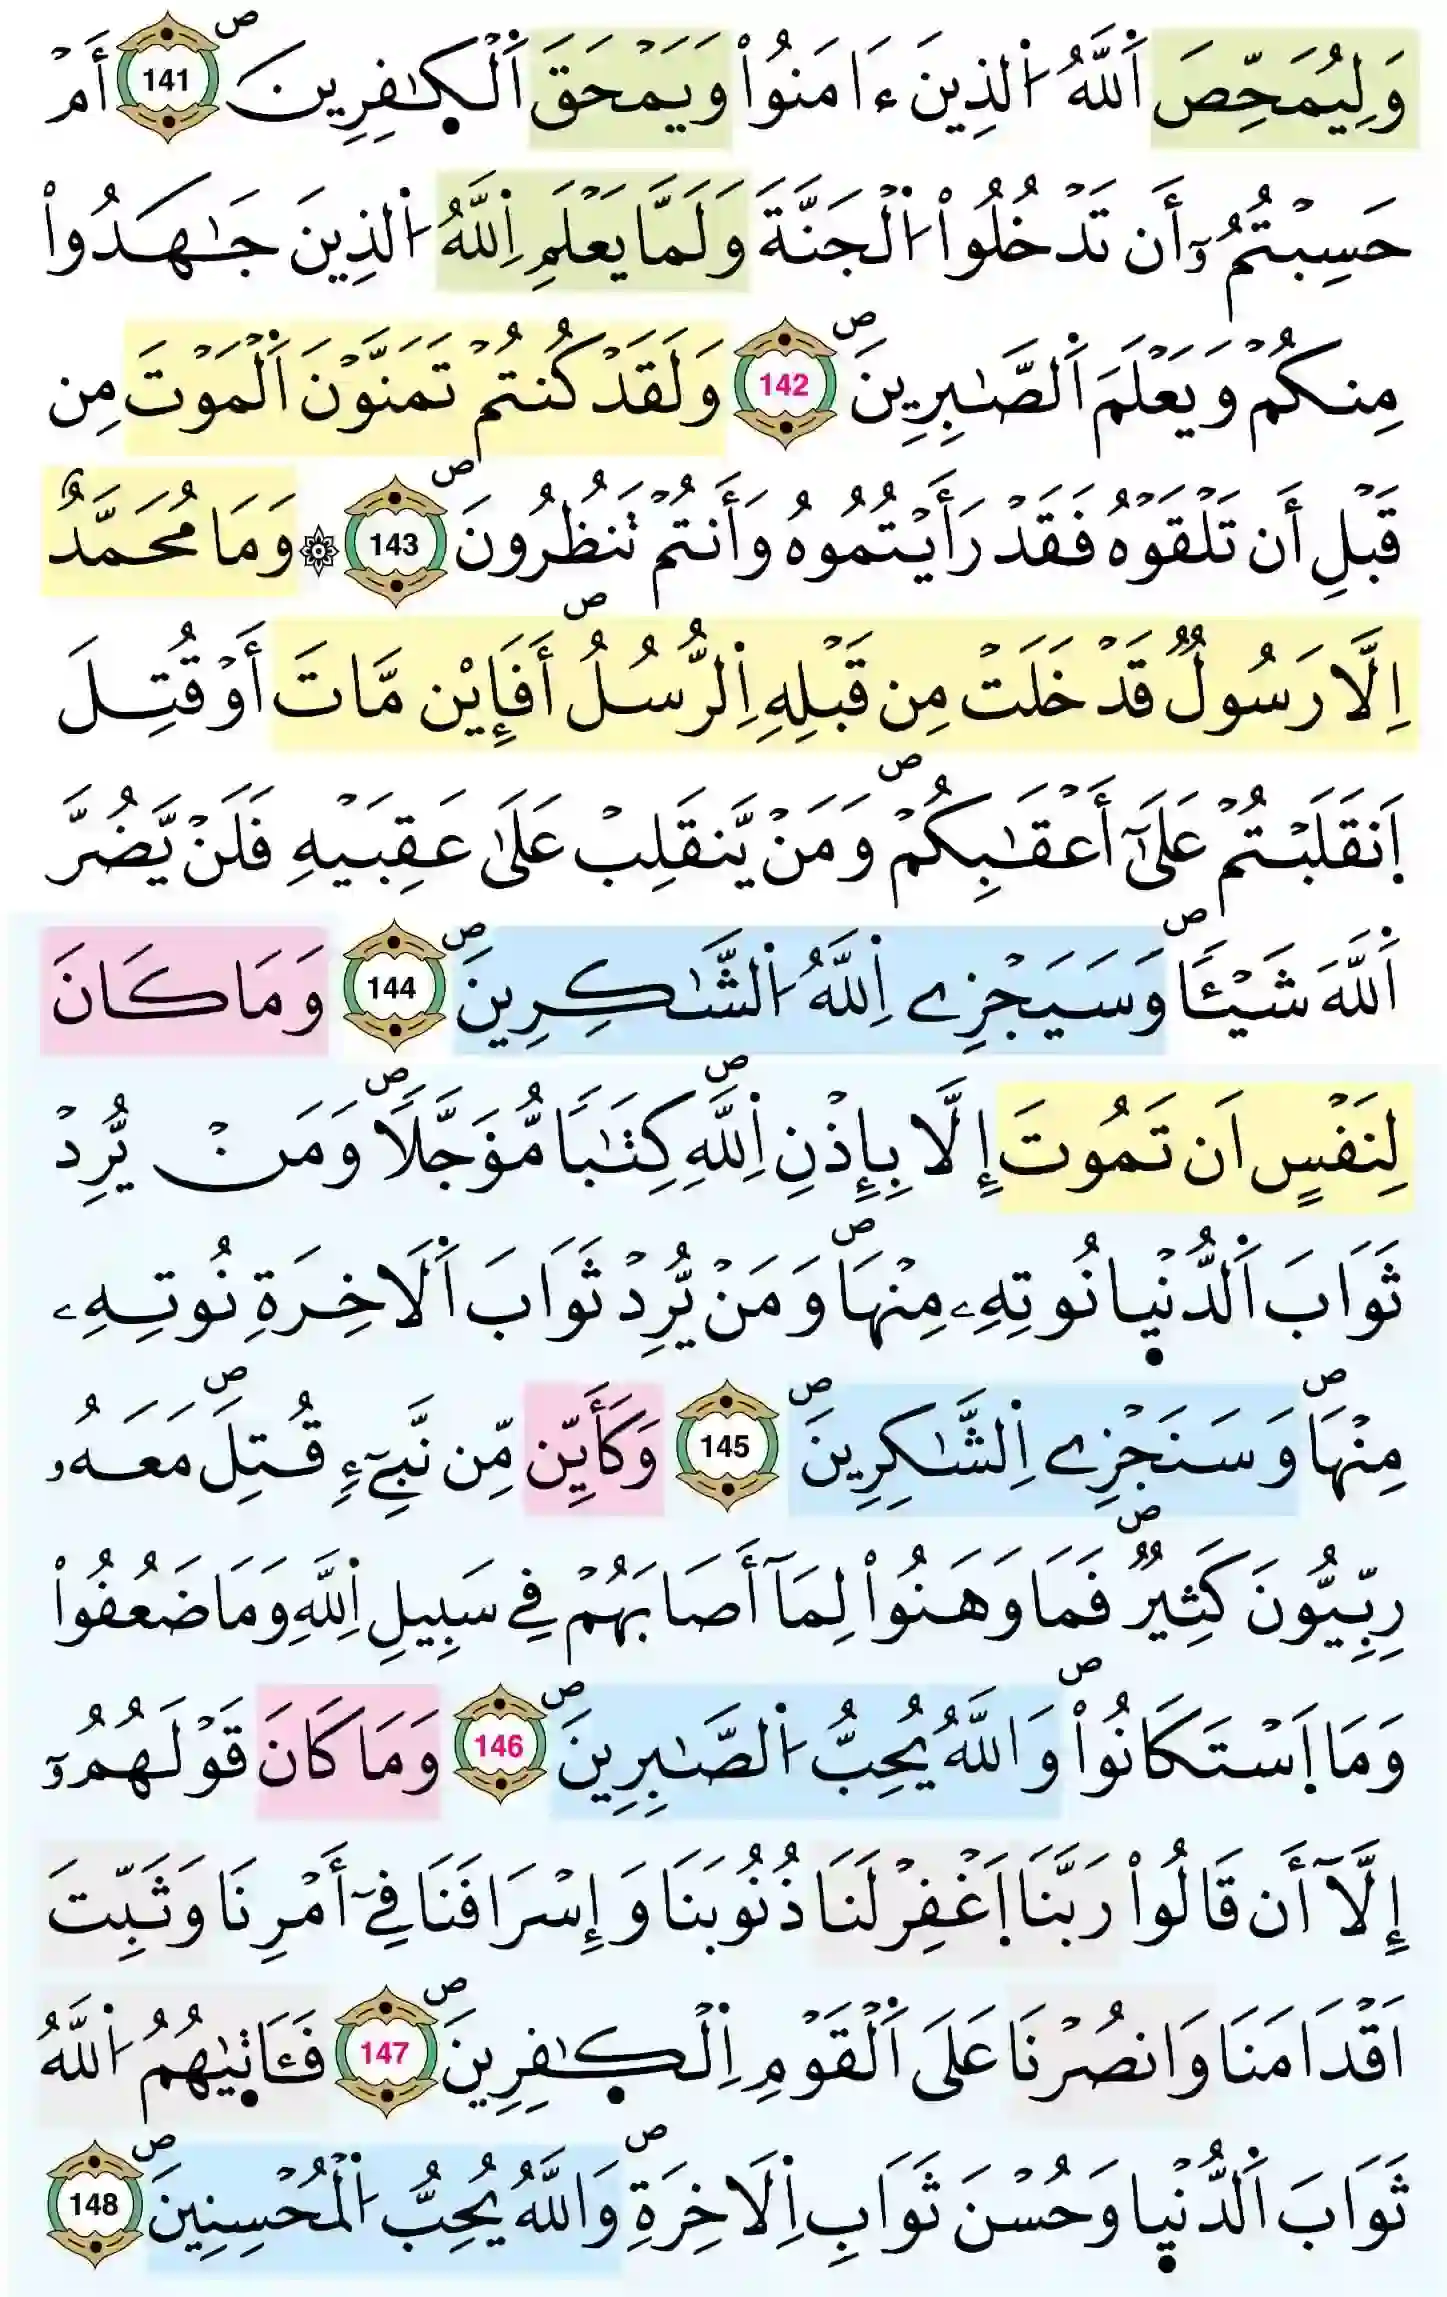 وَلِيُمَحِّصَ اَ۬للَّهُ اُ۬لذِينَ ءَامَنُواْ وَيَمْحَقَ اَ۬لْكٰ۪فِرِينَۖ 141 أَمْ
حَسِبْتُمُۥٓ أَن تَدْخُلُواْ اُ۬لْجَنَّةَ وَلَمَّا يَعْلَمِ اِ۬للَّهُ اُ۬لذِينَ جَٰهَدُواْ
مِنكُمْ وَيَعْلَمَ اَ۬لصَّٰبِرِينَۖ 142 وَلَقَدْ كُنتُمْ تَمَنَّوْنَ اَ۬لْمَوْتَ مِن
قَبْلِ أَن تَلْقَوْهُ فَقَدْ رَأَيْتُمُوهُ وَأَنتُمْ تَنظُرُونَۖ 143 ۞ وَمَا مُحَمَّدٌ
اِلَّا رَسُولٌ قَدْ خَلَتْ مِن قَبْلِهِ اِ۬لرُّسُلُۖ أَفَإِيْن مَّاتَ أَوْ قُتِلَ
اَ۪نقَلَبْتُمْ عَلَىٰٓ أَعْقَٰبِكُمْۖ وَمَنْ يَّنقَلِبْ عَلَىٰ عَقِبَيْهِ فَلَنْ يَّضُرَّ
اَ۬للَّهَ شَيْـٔاٗۖ وَسَيَجْزِے اِ۬للَّهُ اُ۬لشَّٰكِرِينَۖ 144 وَمَا كَانَ
لِنَفْسٍ اَن تَمُوتَ إِلَّا بِإِذْنِ اِ۬للَّهِۖ كِتَٰباٗ مُّؤَجَّلاٗۖ وَمَنْ يُّرِدْ
ثَوَابَ اَ۬لدُّنْي۪ا نُوتِهِۦ مِنْهَاۖ وَمَنْ يُّرِدْ ثَوَابَ اَ۬لَاخِرَةِ نُوتِهِۦ
مِنْهَاۖ وَسَنَجْزِے اِ۬لشَّٰكِرِينَۖ 145 وَكَأَيِّن مِّن نَّبِيٓءٖ قُتِلَۖ مَعَهُۥ
رِبِّيُّونَ كَثِيرٞۖ فَمَا وَهَنُواْ لِمَآ أَصَابَهُمْ فِے سَبِيلِ اِ۬للَّهِ وَمَا ضَعُفُواْ
وَمَا اَ۪سْتَكَانُواْۖ وَاللَّهُ يُحِبُّ اُ۬لصَّٰبِرِينَۖ 146 وَمَا كَانَ قَوْلَهُمُۥٓ
إِلَّآ أَن قَالُواْ رَبَّنَا اَ۪غْفِرْ لَنَا ذُنُوبَنَا وَإِسْرَافَنَا فِےٓ أَمْرِنَا وَثَبِّتَ
اَقْدَامَنَا وَانصُرْنَا عَلَى اَ۬لْقَوْمِ اِ۬لْكٰ۪فِرِينَۖ 147 فَـَٔات۪يٰهُمُ اُ۬للَّهُ
ثَوَابَ اَ۬لدُّنْي۪ا وَحُسْنَ ثَوَابِ اِ۬لَاخِرَةِۖ وَاللَّهُ يُحِبُّ اُ۬لْمُحْسِنِينَۖ 148